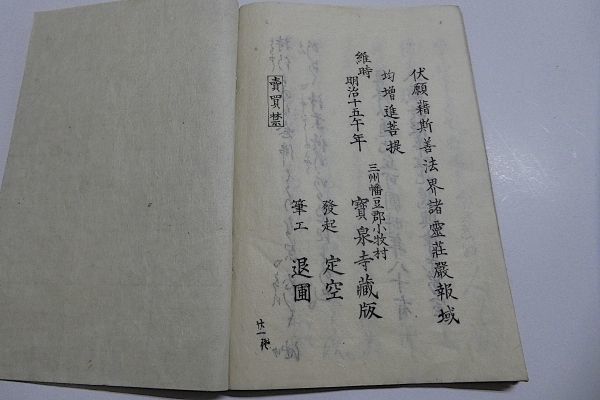 伏願藉斯善法界諸靈莊嚴報域
均增進菩提
維時
明治十五午年
三州幡豆郡小牧村
寶泉寺藏版
發起 定空
筆工 退圃
賣買禁